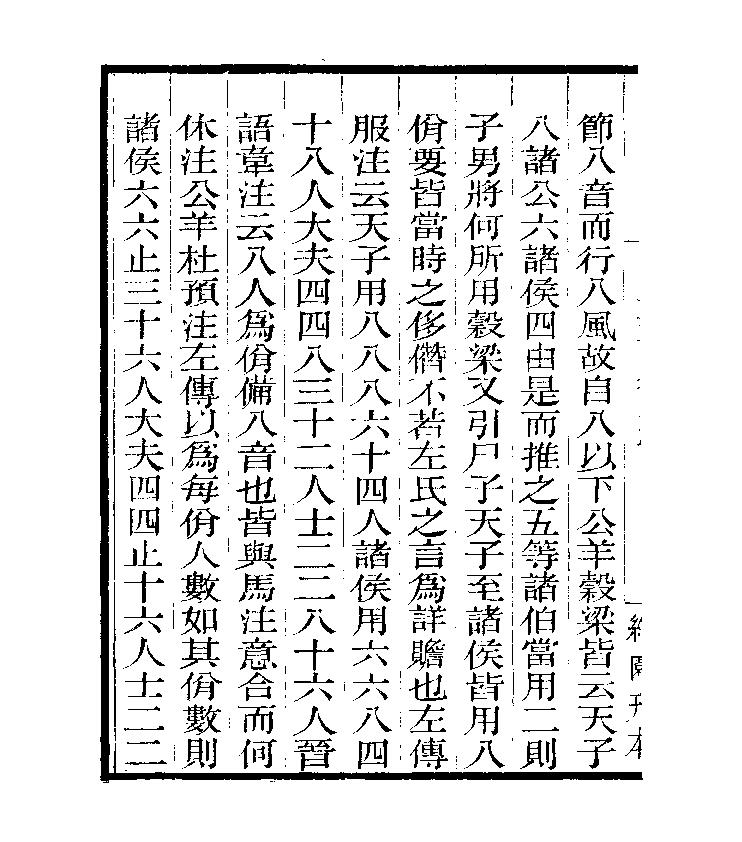 節八音而行八風故自八以下公羊穀梁皆云天子
八諸公六諸侯四由是而推之五等諸伯當用二則
子男將何所用穀梁又引尸子天子至諸侯皆用八
佾要皆當時之侈僭不若左氏之言爲詳贍也左傳
服注云天子用八八八六十四人諸侯用六六八四
十八人大夫四四八三十二人士二二八十六人晉
語韋注云八人爲佾備八音也皆與馬注意合而何
休注公羊杜預注左傳以爲每佾人數如其佾數則
諸侯六六止三十六人大夫四四止十六人士二二